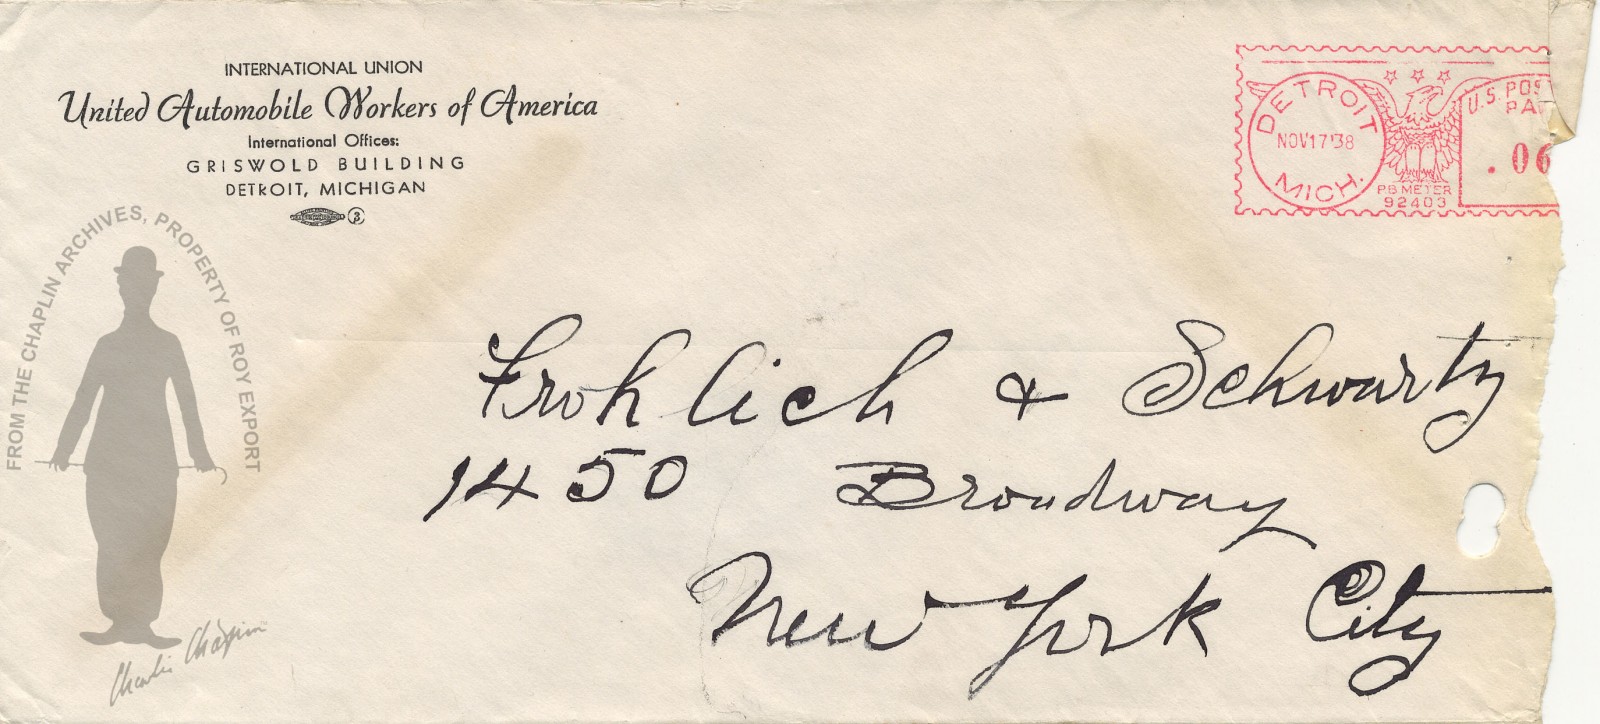 INTERNATIONAL UNION
United Automobile Workers of America
International Offices:
GRISWOLD BUILDING
DETROIT, MICHIGAN
3
DETROIT
NOV 17 '38
MICH.
P.B. METER
92403
U.S. POS
PA
.06
FROM THE CHAPLIN ARCHIVES, PROPERTY OF ROY EXPORT
Charlie Chaplin
Frohlich & Schwartz
1450 Broadway
New York City